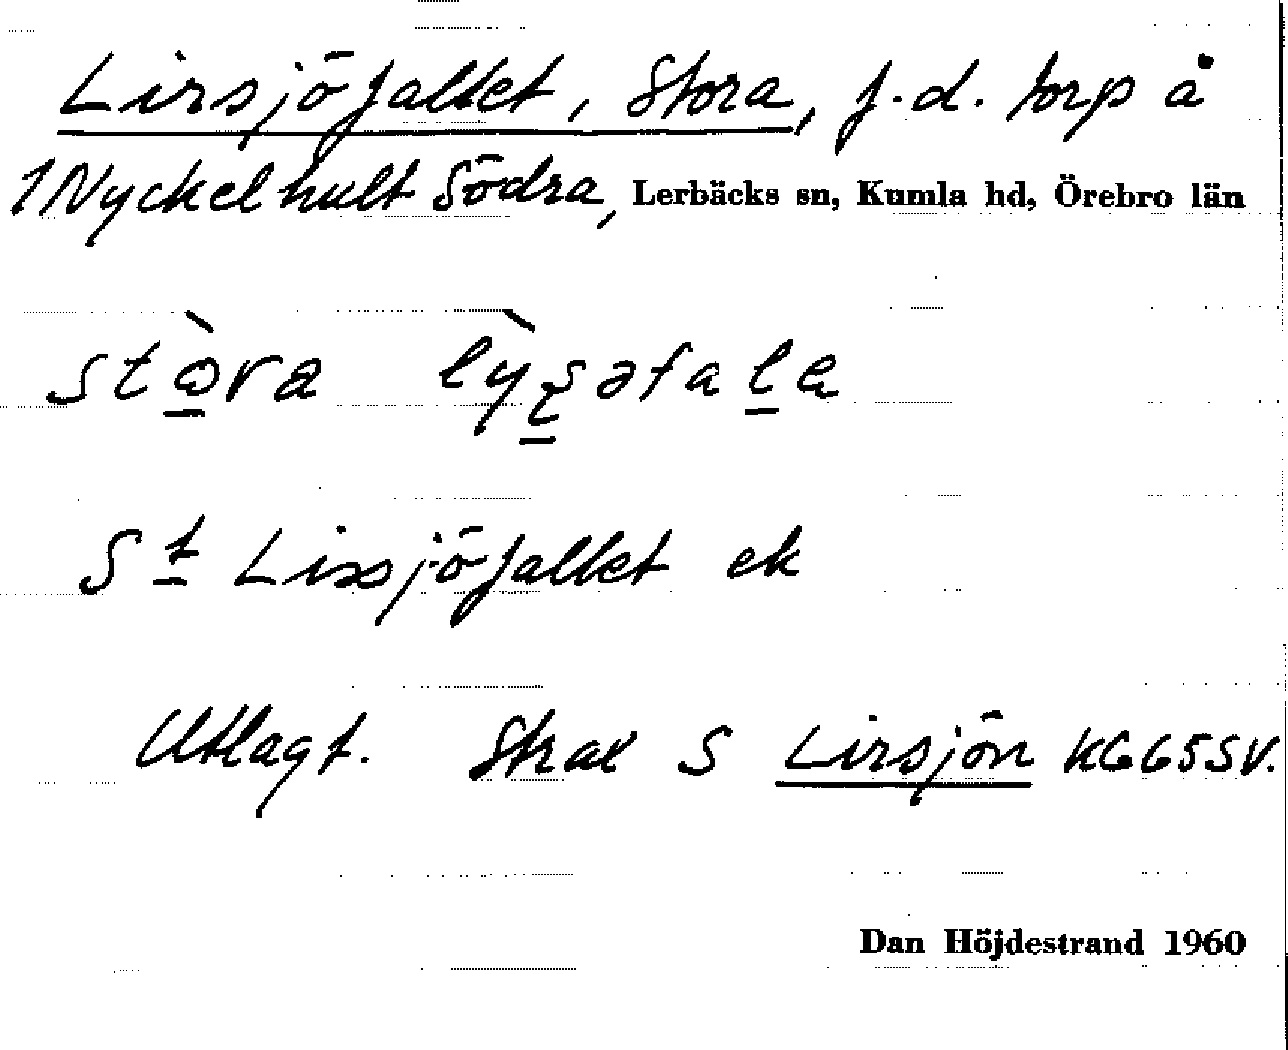 Lirsjöfallet, Stora, f.d. torp å
1 Nyckelhult Södra, Lerbäcks sn, Kumla hd, Örebro län
stò̱ra lỳʂəfaḻa
St Lissjöfallet ek
Utlagt. Strax S Lirsjön KG65SV.
Dan Höjdestrand 1960